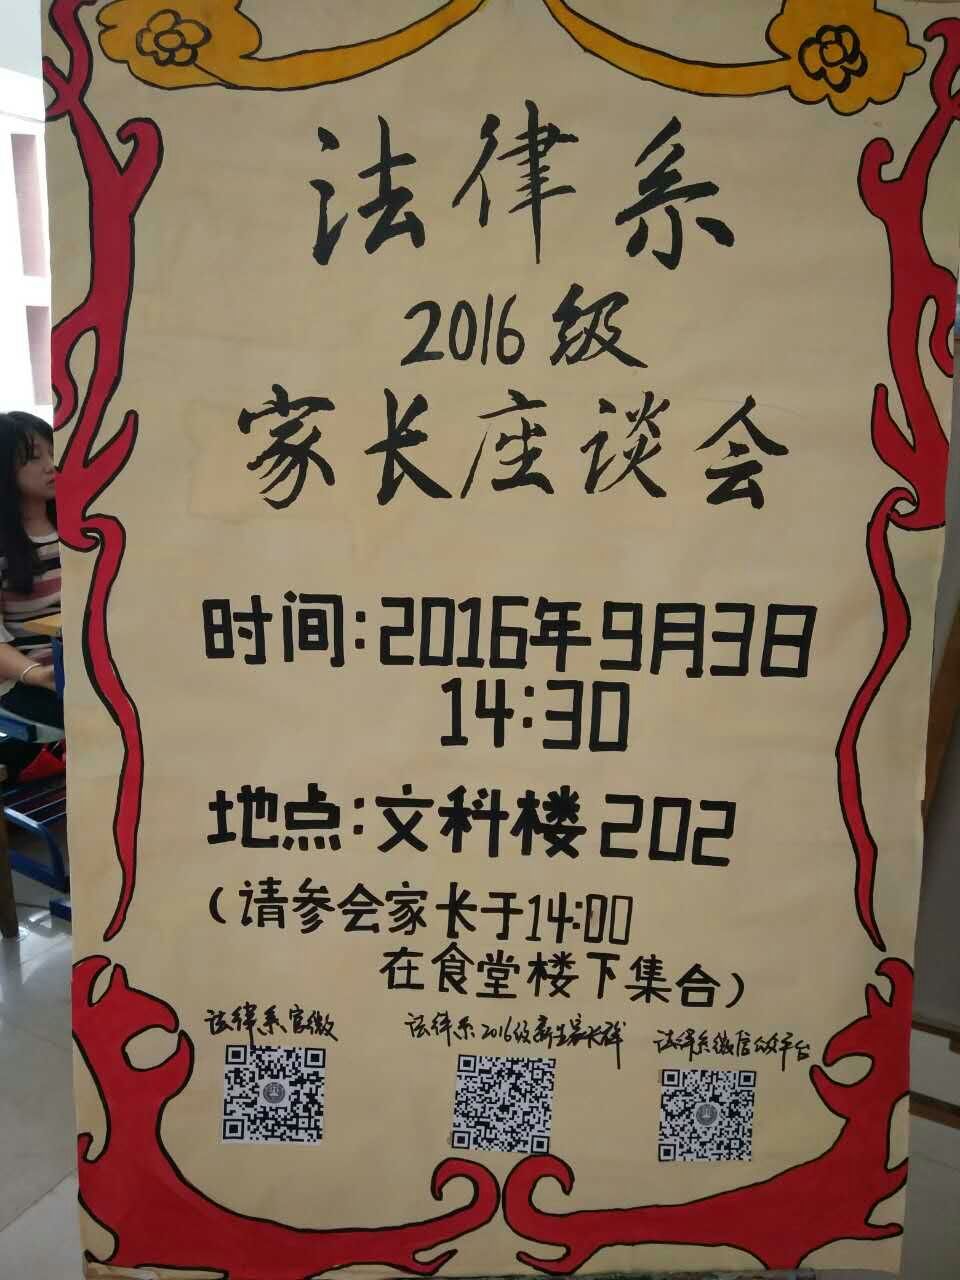 法律系
2016级
家长座谈会
时间:2016年9月3日
14:30
地点:文科楼202
(请参会家长于14:00
在食堂楼下集合)
法律系官微
法律系2016级新生家长群
法律系微信公众平台